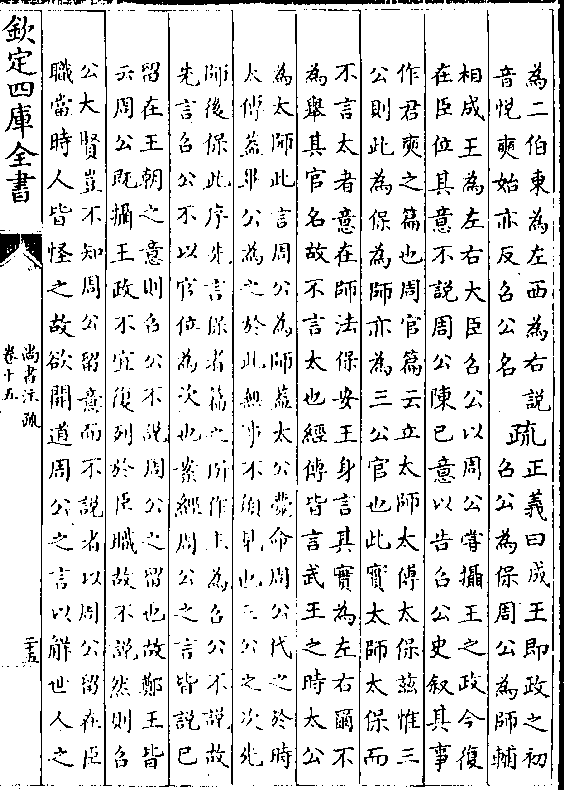 為二伯東為左西為右說
音悅奭始亦反召公名
疏
正義曰成王即政之初
召公為保周公為師輔
相成王為左右大臣召公以周公嘗攝王之政今復
在臣位其意不說周公陳己意以告召公史叙其事
作君奭之篇也周官篇云立太師太傅太保茲惟三
公則此為保為師亦為三公官也此實太師太保而
不言太者意在師法保安王身言其實為左右爾不
為舉其官名故不言太也經傳皆言武王之時太公
為太師此言周公為師蓋太公薨命周公代之於時
太傅蓋畢公為之於此無事不須見也三公之次先
師後保此序先言保者篇之所作主為召公不說故
先言召公不以官位為次也案經周公之言皆說己
留在王朝之意則召公不說周公之留也故鄭王皆
云周公既攝王政不宜復列於臣職故不說然則召
公大賢豈不知周公留意而不說者以周公留在臣
職當時人皆怪之故欲開道周公之言以解世人之
欽定四庫全書
尚書注疏
卷十五
二十五